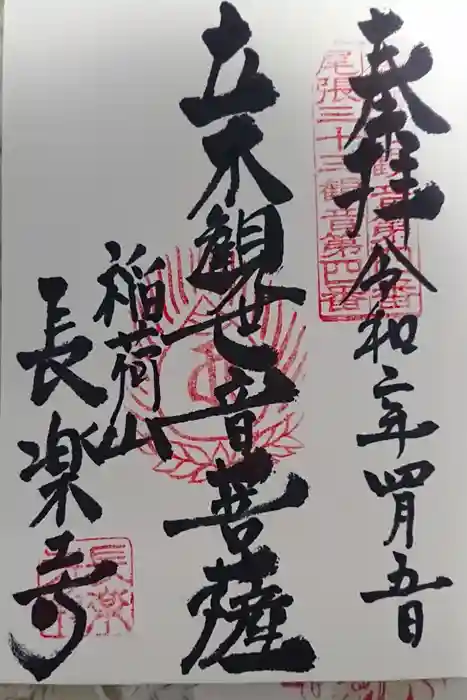 奉拝
令和二年四月五日
尾張三十三観音第四番
立木観世音菩薩
稲荷山
長楽寺